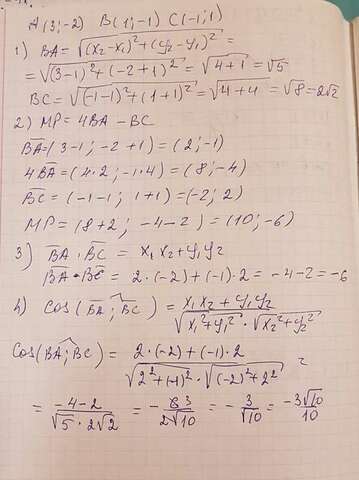 A(3;-2) B(1;-1) C(-1;1)
1) BA = √(x₂-x₁)²+(y₂-y₁)² =
= √(3-1)²+(-2+1)² = √4+1 = √5
BC = √(-1-1)²+(1+1)² = √4+4 = √8 = 2√2
2) MP = 4BA - BC
BA = (3-1; -2+1) = (2;-1)
4BA = (4·2; -1·4) = (8;-4)
BC = (-1-1; 1+1) = (-2; 2)
MP = (8+2; -4-2) = (10;-6)
3) BA · BC = x₁x₂+y₁y₂
BA · BC = 2·(-2)+(-1)·2 = -4-2 = -6
4) cos(BA; BC) = x₁x₂+y₁y₂ / √x₁²+y₁² · √x₂²+y₂²
cos(BA; BC) = 2·(-2)+(-1)·2 / √2²+(-1)² · √(-2)²+2² =
= -4-2 / √5 · 2√2 = - 6 3 / 2√10 = - 3 / √10 = -3√10 / 10